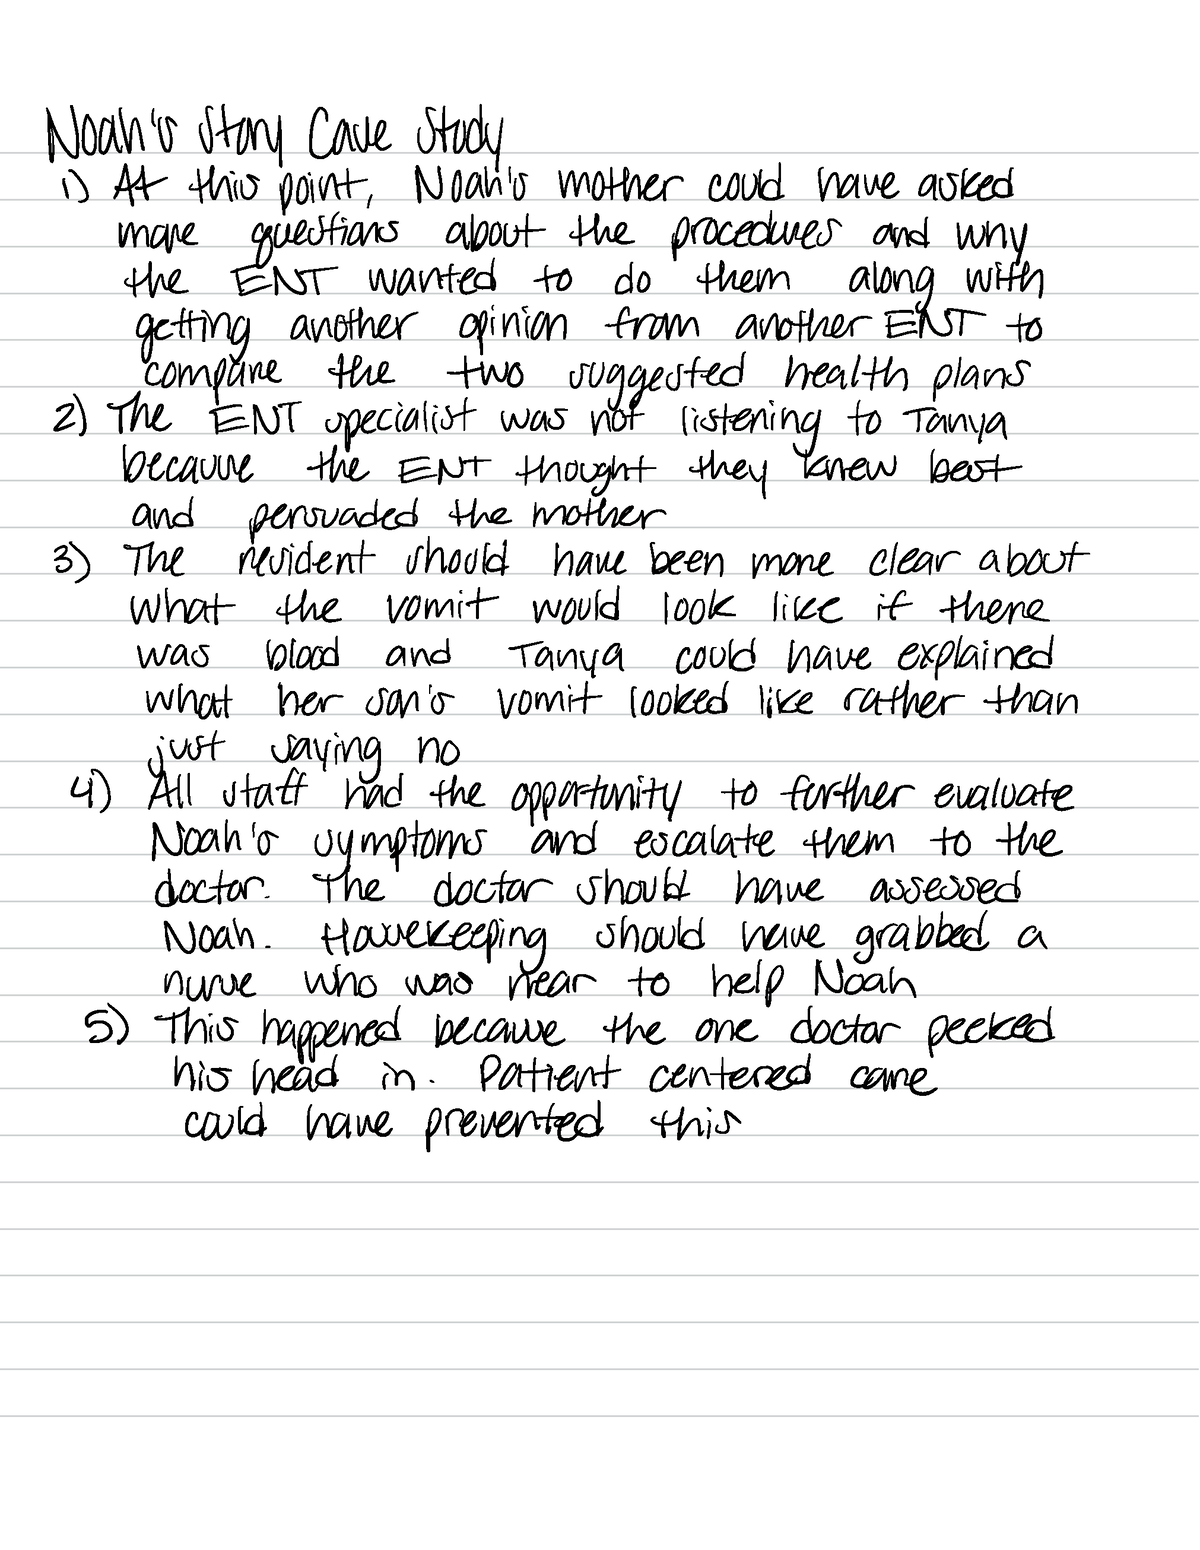 Noah's Story Case Study
1) At this point, Noah's mother could have asked
more questions about the procedures and why
the ENT wanted to do them along with
getting another opinion from another ENT to
compare the two suggested health plans
2) The ENT specialist was not listening to Tanya
because the ENT thought they knew best
and persuaded the mother
3) The resident should have been more clear about
what the vomit would look like if there
was blood and Tanya could have explained
what her son's vomit looked like rather than
just saying no
4) All staff had the opportunity to further evaluate
Noah's symptoms and escalate them to the
doctor. The doctor should have assessed
Noah. Housekeeping should have grabbed a
nurse who was near to help Noah
5) This happened because the one doctor peeked
his head in. Patient centered care
could have prevented this